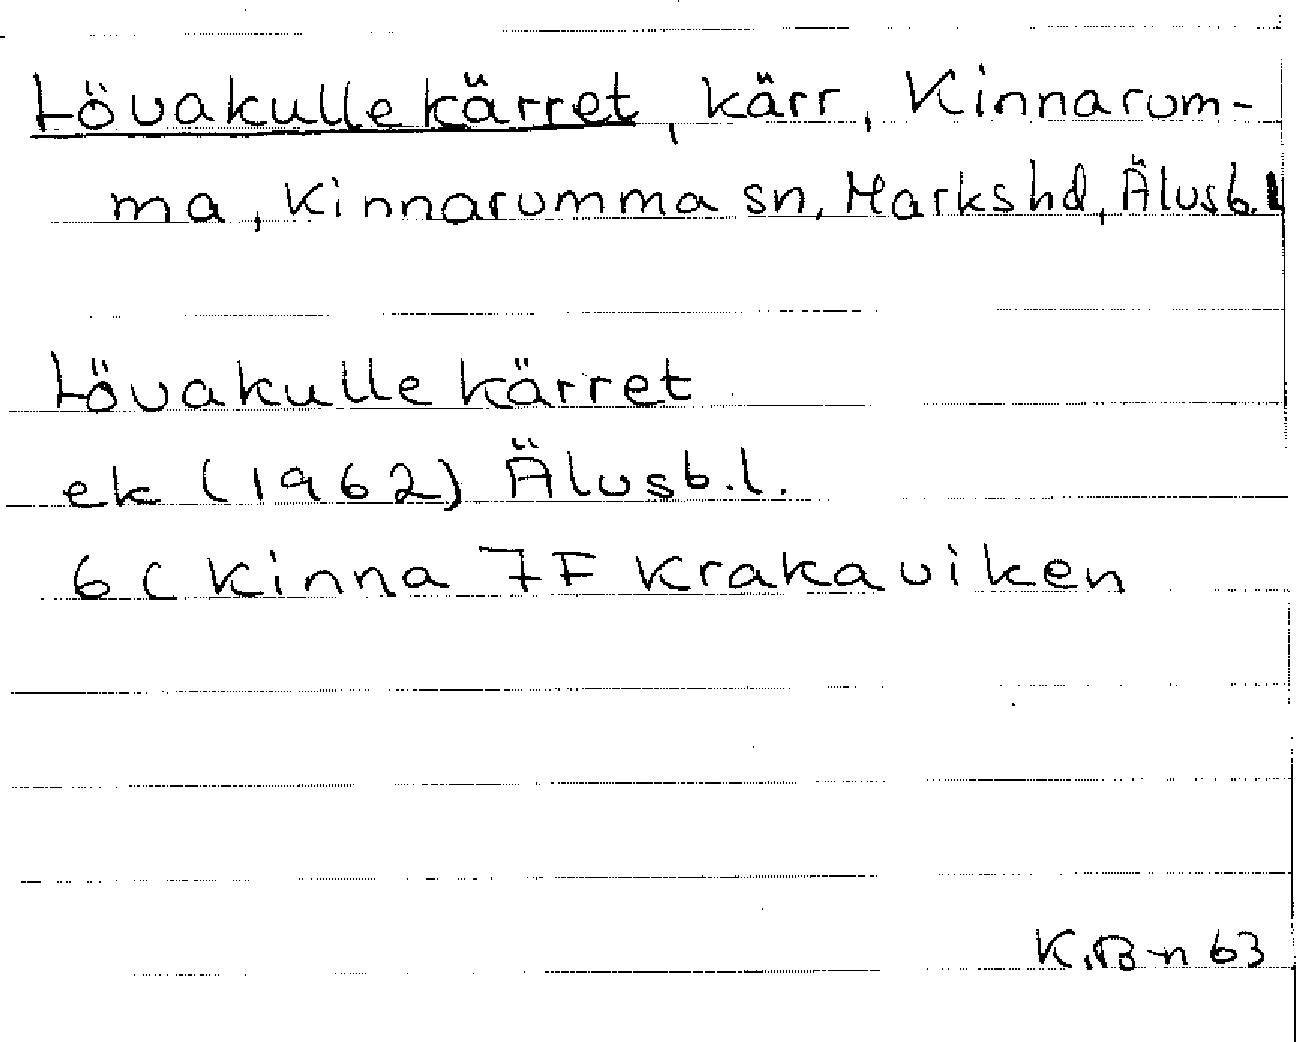 Lövakullekärret, kärr, Kinnarum-
ma, Kinnarumma sn, Marks hd, Älvsb. l
Lövakullekärret
ek (1962) Älvsb. l.
6C Kinna 7F Krakaviken
K. B-n 63